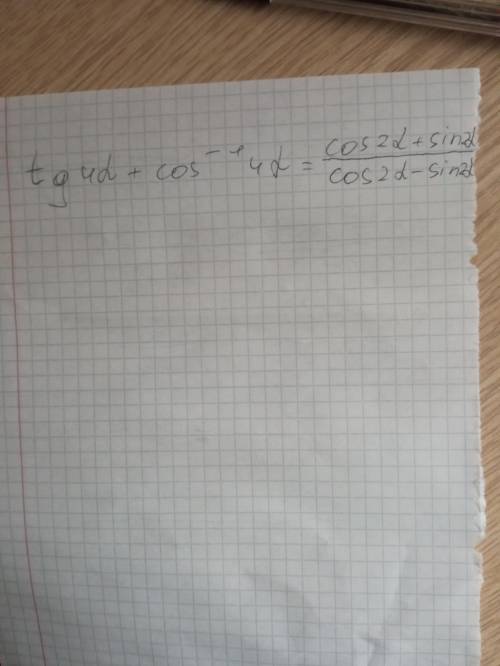 tg 4α + cos⁻¹ 4α = (cos2α + sin2α)/(cos2α - sin2α)